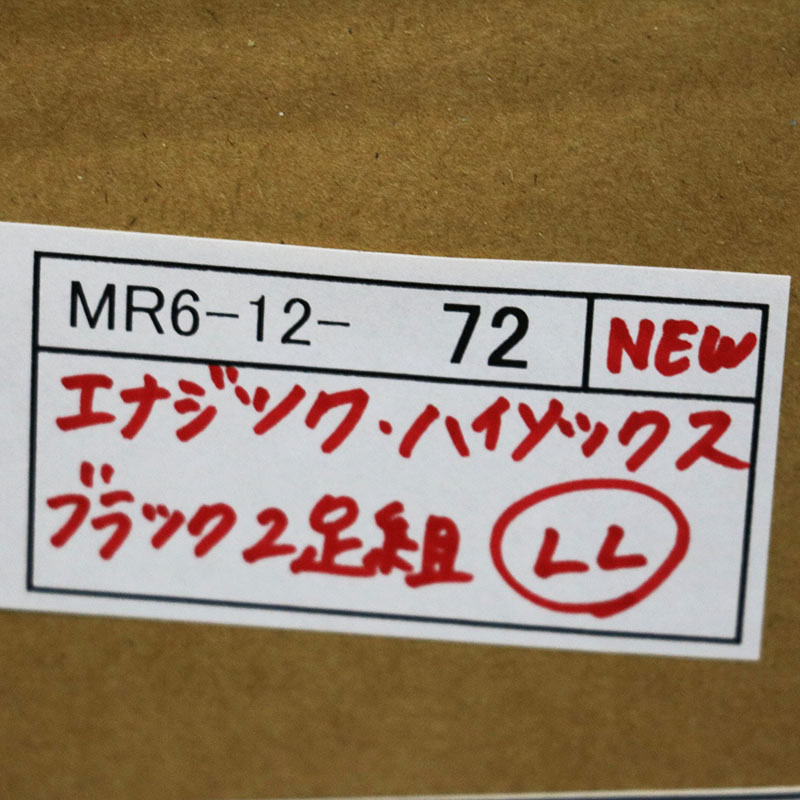 MR6-12- 72 NEW
エナジック・ハイソックス
ブラック2足組 LL